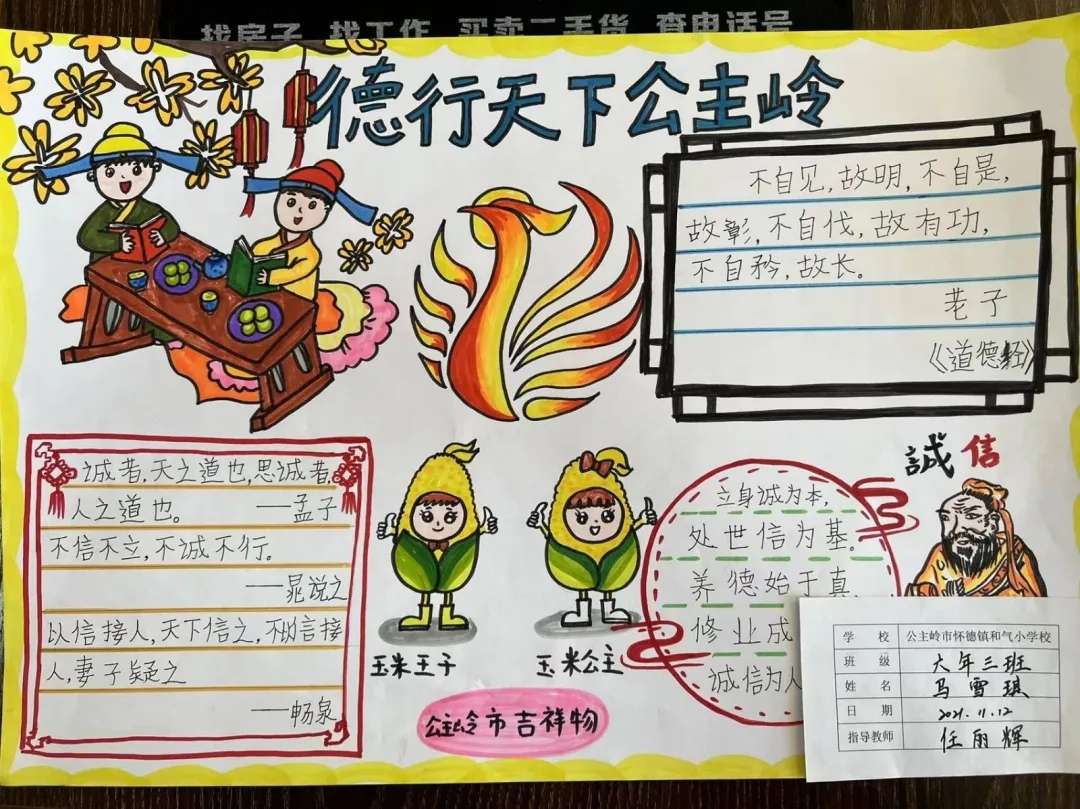 找房子 找工作 买卖二手货 查电话号
德行天下公主岭
不自见,故明,不自是,
故彰,不自伐,故有功,
不自矜,故长。
老子
《道德经》
诚者,天之道也,思诚者,
人之道也。 ——孟子
不信不立,不诚不行。
——晁说之
以信接人,天下信之,不以信接
人,妻子疑之
——畅泉
玉米王子
玉米公主
公主岭市吉祥物
誠信
立身诚为本,
处世信为基。
养德始于真
修业成
诚信为人
学 校 公主岭市怀德镇和气小学校
班 级 六年三班
姓 名 马雪琪
日 期 2021.11.12
指导教师 任丽辉